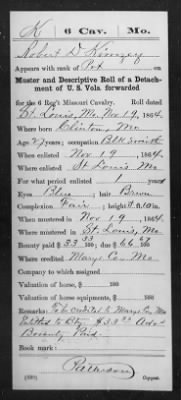 K 6 Cav. Mo.
Robert D
Appears with rank of Pvt on
Muster and Descriptive Roll of a Detach-
ment of U. S. Vols. forwarded
for the 6 Reg't Missouri Cavalry. Roll dated
St. Louis, Mo. Nov 19, 1864.
Where born Clinton, Mo
Age 27 years; occupation Blk Smith
When enlisted Nov 19, 1864.
Where enlisted St Louis Mo
For what period enlisted 1 years.
Eyes Blue; hair Brown
Complexion Fair; height 5 ft. 10 in.
When mustered in Nov 19, 1864.
Where mustered in St. Louis, Mo
Bounty paid $33 33/100 due $66 67/100
Where credited Marys Co Mo
Company to which assigned
Valuation of horse, $ 100
Valuation of horse equipments, $ 100
Remarks: To be credited to Co. Mo
Entitled to $33 33 Adv
Bounty Paid.
Book mark:
Copyist.